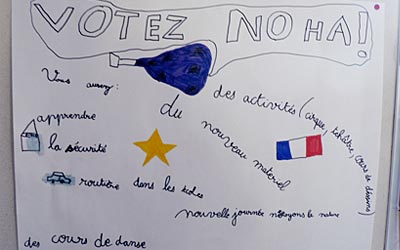 VOTEZ NOHA!
Vous aurez :
des activités (cirque, théâtre, cours de dessins)
du nouveau matériel
apprendre
la sécurité
routière dans les écoles
nouvelle journée nettoyons la nature
des cours de danse